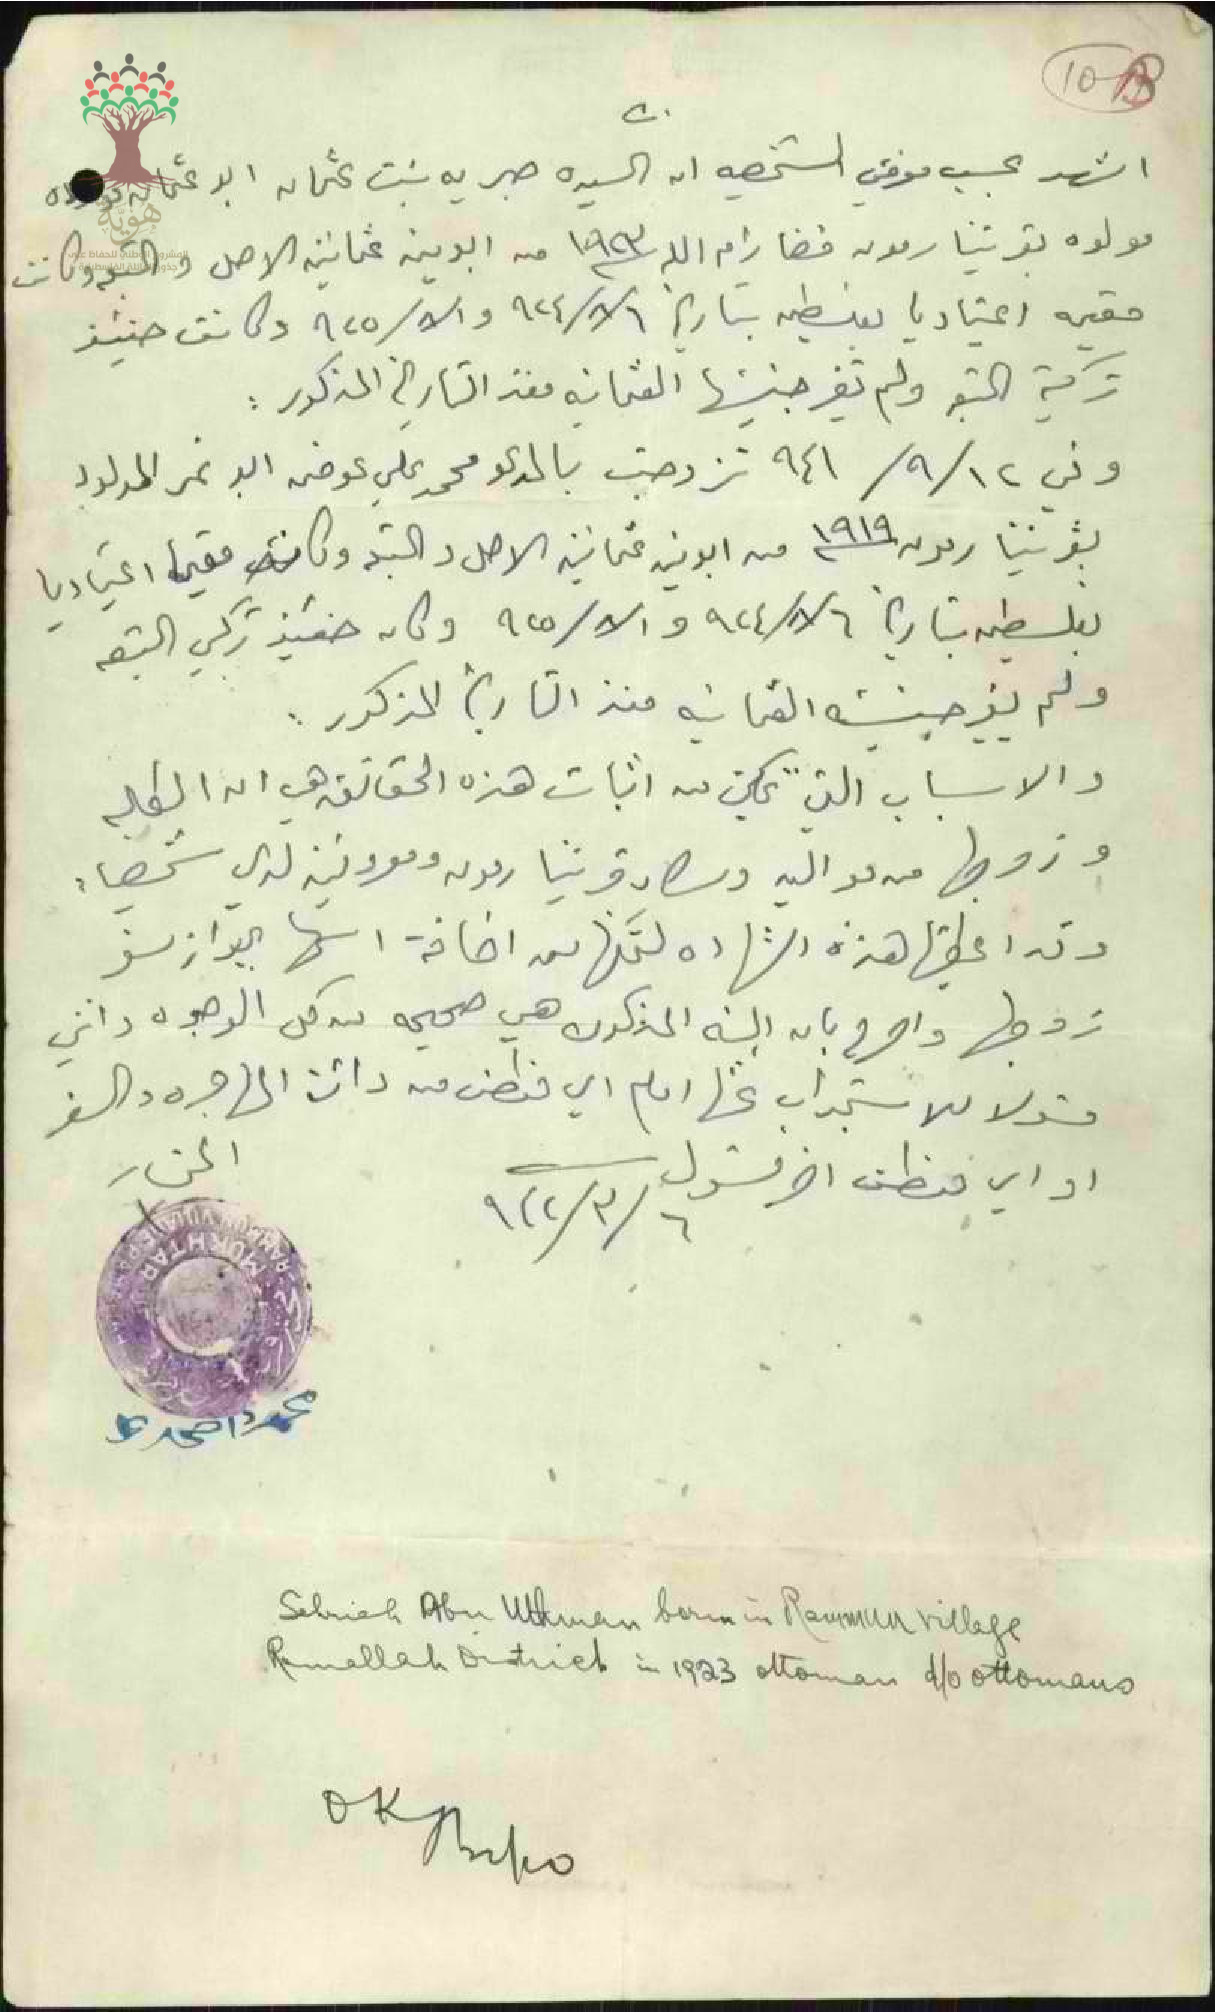 10 B
اشهد بحسب معرفتي الشخصيه ان السيده صبريه بنت عثمان ابو عثمان
مولوده بقريتنا رمون قضا رام الله ١٩٢٣ من ابوين عثمانين الاصل والتبعه وكانت
مقيمه اعتياديا بفلسطين بتاريخ ٦/٨/٩٢٤ و ١/٨/٩٢٥ وكانت حينئذ
تركية التبعه ولم تغير جنسيتها العثمانيه منذ التاريخ المذكور :
وفي ١٢/٩/٩٤١ تزوجت بالمدعو محمد علي عوض ابو نمر المولود
بقريتنا رمون ١٩١٩ من ابوين عثمانين الاصل والتبعه وكان مقيما اعتياديا
بفلسطين بتاريخ ٦/٨/٩٢٤ و ١/٨/٩٢٥ وكان حينئذ تركي التبعه
ولم يغير جنسيته العثمانيه منذ التاريخ المذكور :
والاسباب التي تمكني من اثبات هذه الحقائق هي ان الطالبه
وزوجها من مواليد وسكان قريتنا رمون ومعروفين لدي شخصيا :
وقد اعطيتها هذه الشهاده لتمكنها من اضافة اسمها بجواز سفر
زوجها واصرح بان البينه المذكوره هي صحيحه من كل الوجوه وانني
مسؤلا للاستجواب عنها امام اي موظف من دائرة المهاجره والسفر
او اي موظف اخر مسؤل
٦/٣/٩٤٢
المختار
MUKHTAR
محمد احمد
Sebrieh Abu Uthman born in Rammun village
Ramallah District in 1923 ottoman d/o ottomans
OK